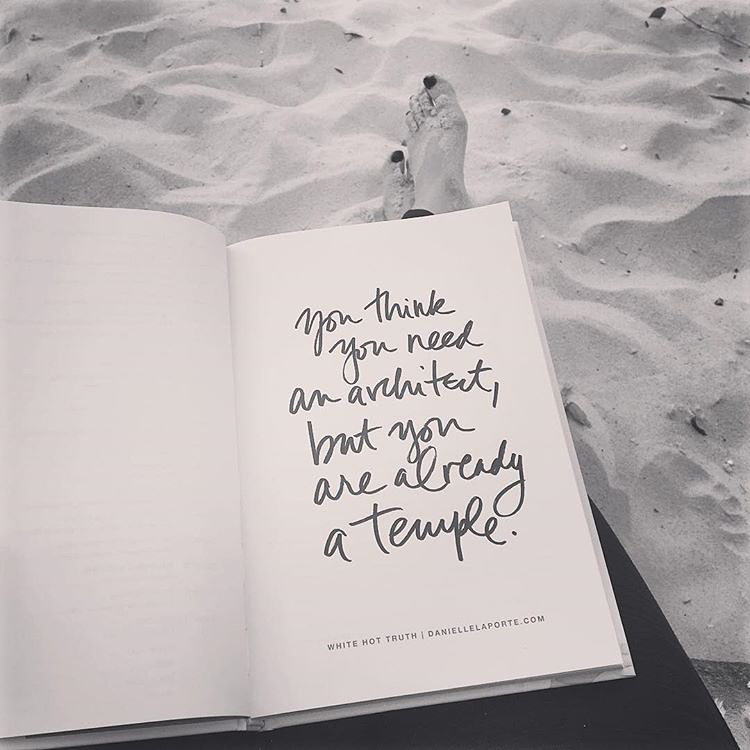 you think
you need
an architect,
but you
are already
a temple.
WHITE HOT TRUTH | DANIELLELAPORTE.COM